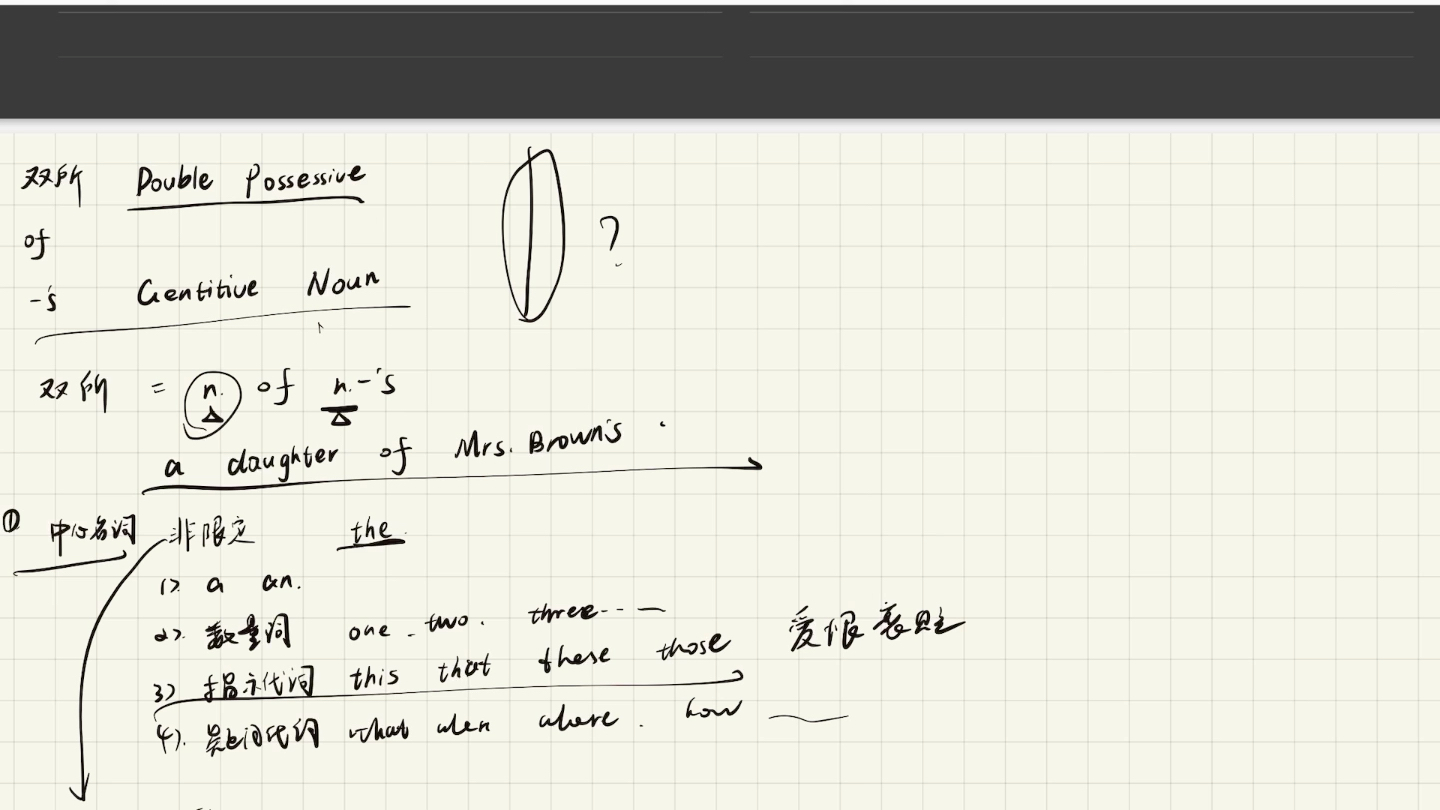 双所 Double Possessive
of
-'s Gentitive Noun
?
双所 = n. of n.-'s
a daughter of Mrs. Brown's.
① 中心名词 非限定 the
1). a an.
2). 数量词 one. two. three...
3) 指示代词 this that these those
爱恨褒贬
4). 疑问代词 what when where. how